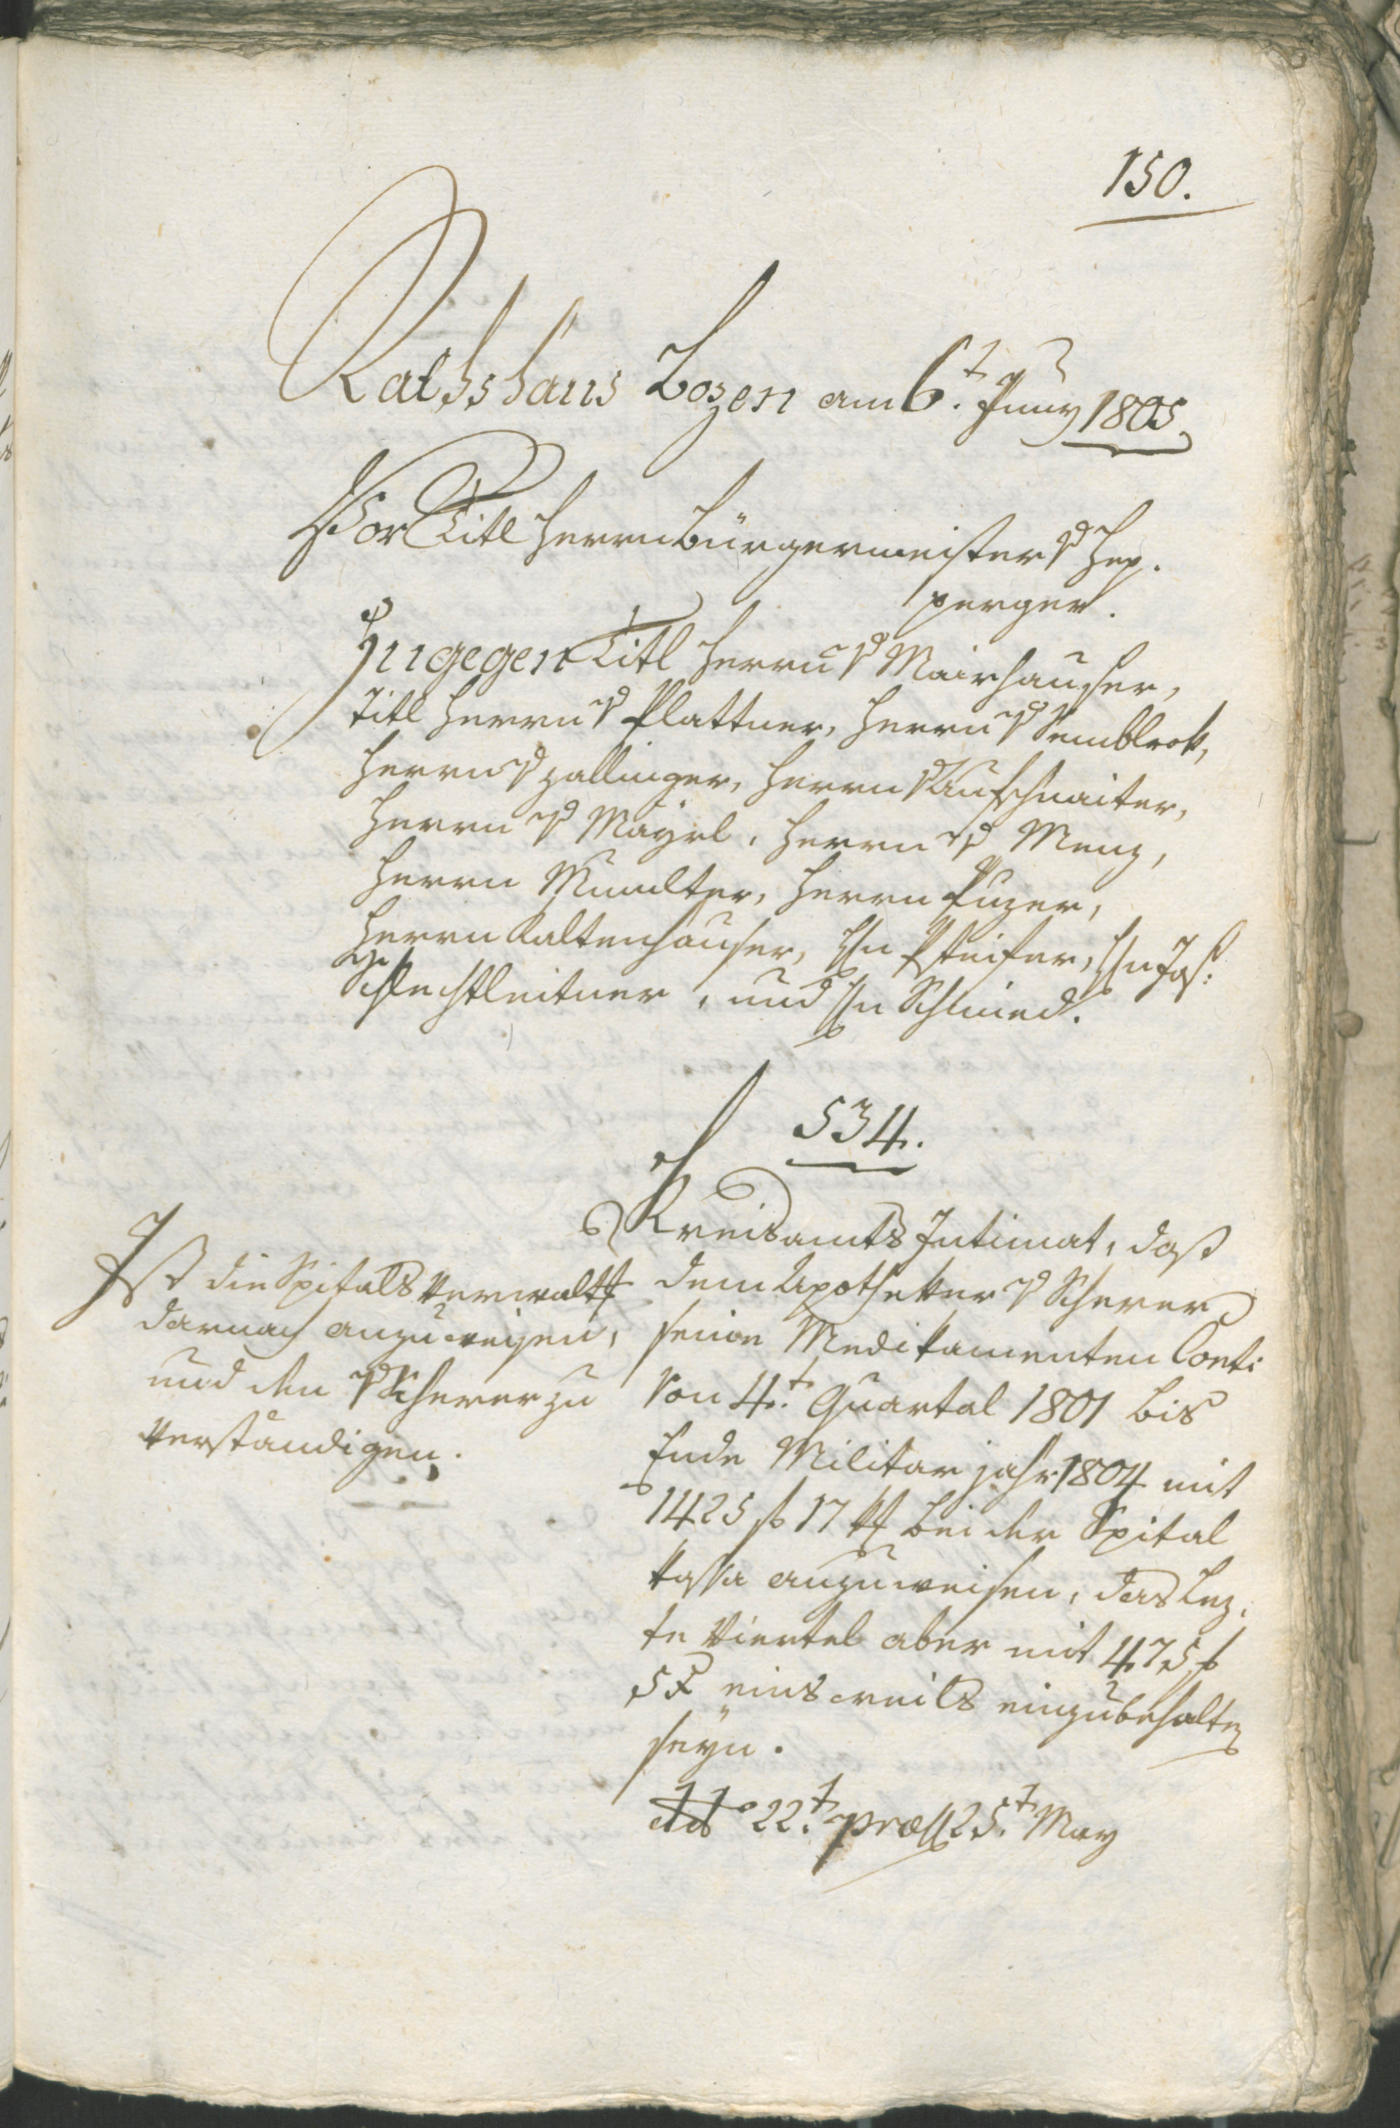 150.
Rathshaus Bozen am 6.t Juny 1805
Vor Titl Herrn Bürgermeister v Hep¬
perger.
Ingegen Titl Herrn v Mairhauser,
Titl Herrn v Plattner, Herrn vRemblok,
Herrn v Zallinger, Herrn v Aufschnaiter,
Herrn v Mayrl, Herrn v Menz,
Herrn Mumelter, Herrn Puzer,
Herrn Kaltenhauser, Hn Pfeifer, Hn Jos:
Schlechtleitner, und Hn Schmied.
534.
Kreisamts Intimat, daß
dem Apotheker v Scherer
seine Medikamenten Conti
von 4.t Quartal 1801 bis
Ende Militar jahr 1804 mit
1425 f 17 xr bei der Spital
kassa anzuweisen, das lez¬
te Viertel aber mit 475 f
5 x einsweils einzubehalten
seyn.
ddo 22.t præs 25.t May
Ist die Spitals Verwaltg
darnach anzuweisen,
und der v Scherer zu
verständigen.